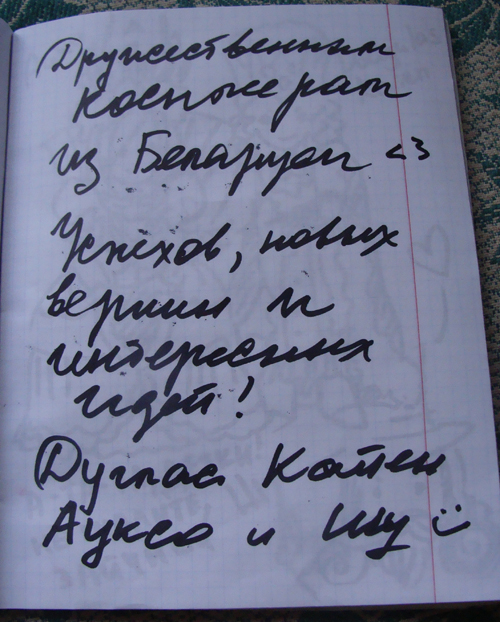 Дружественным
косплеерам
из Беларуси <3
Успехов, новых
вершин и
интересных
идей!
Дуглас Кэтен
Ауксо и Шу